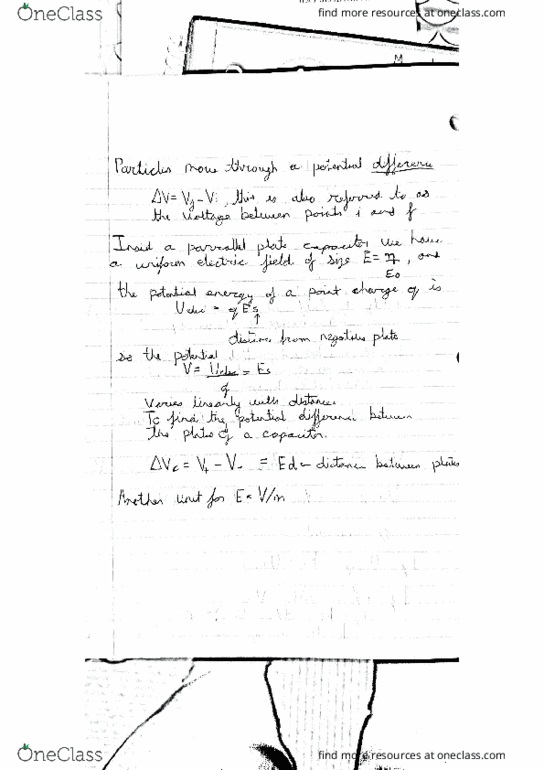 OneClass
find more resources at oneclass.com
M
Particles move through a potential difference
ΔV = Vf - Vi, this is also referred to as
the voltage between points i and f
Insid a parrallel plate capacitor we have
a uniform electric field of size E = η/ε0, and
the potential energy of a point charge q is
Uelec = qEs
↑
distance from negative plate
so the potential
V = Uelec/q = Es
Varies linearly with distance.
To find the potential difference between
the plates of a capacitor.
ΔVc = V+ - V- = Ed ← distance between plates
Another unit for E = V/m
OneClass
find more resources at oneclass.com